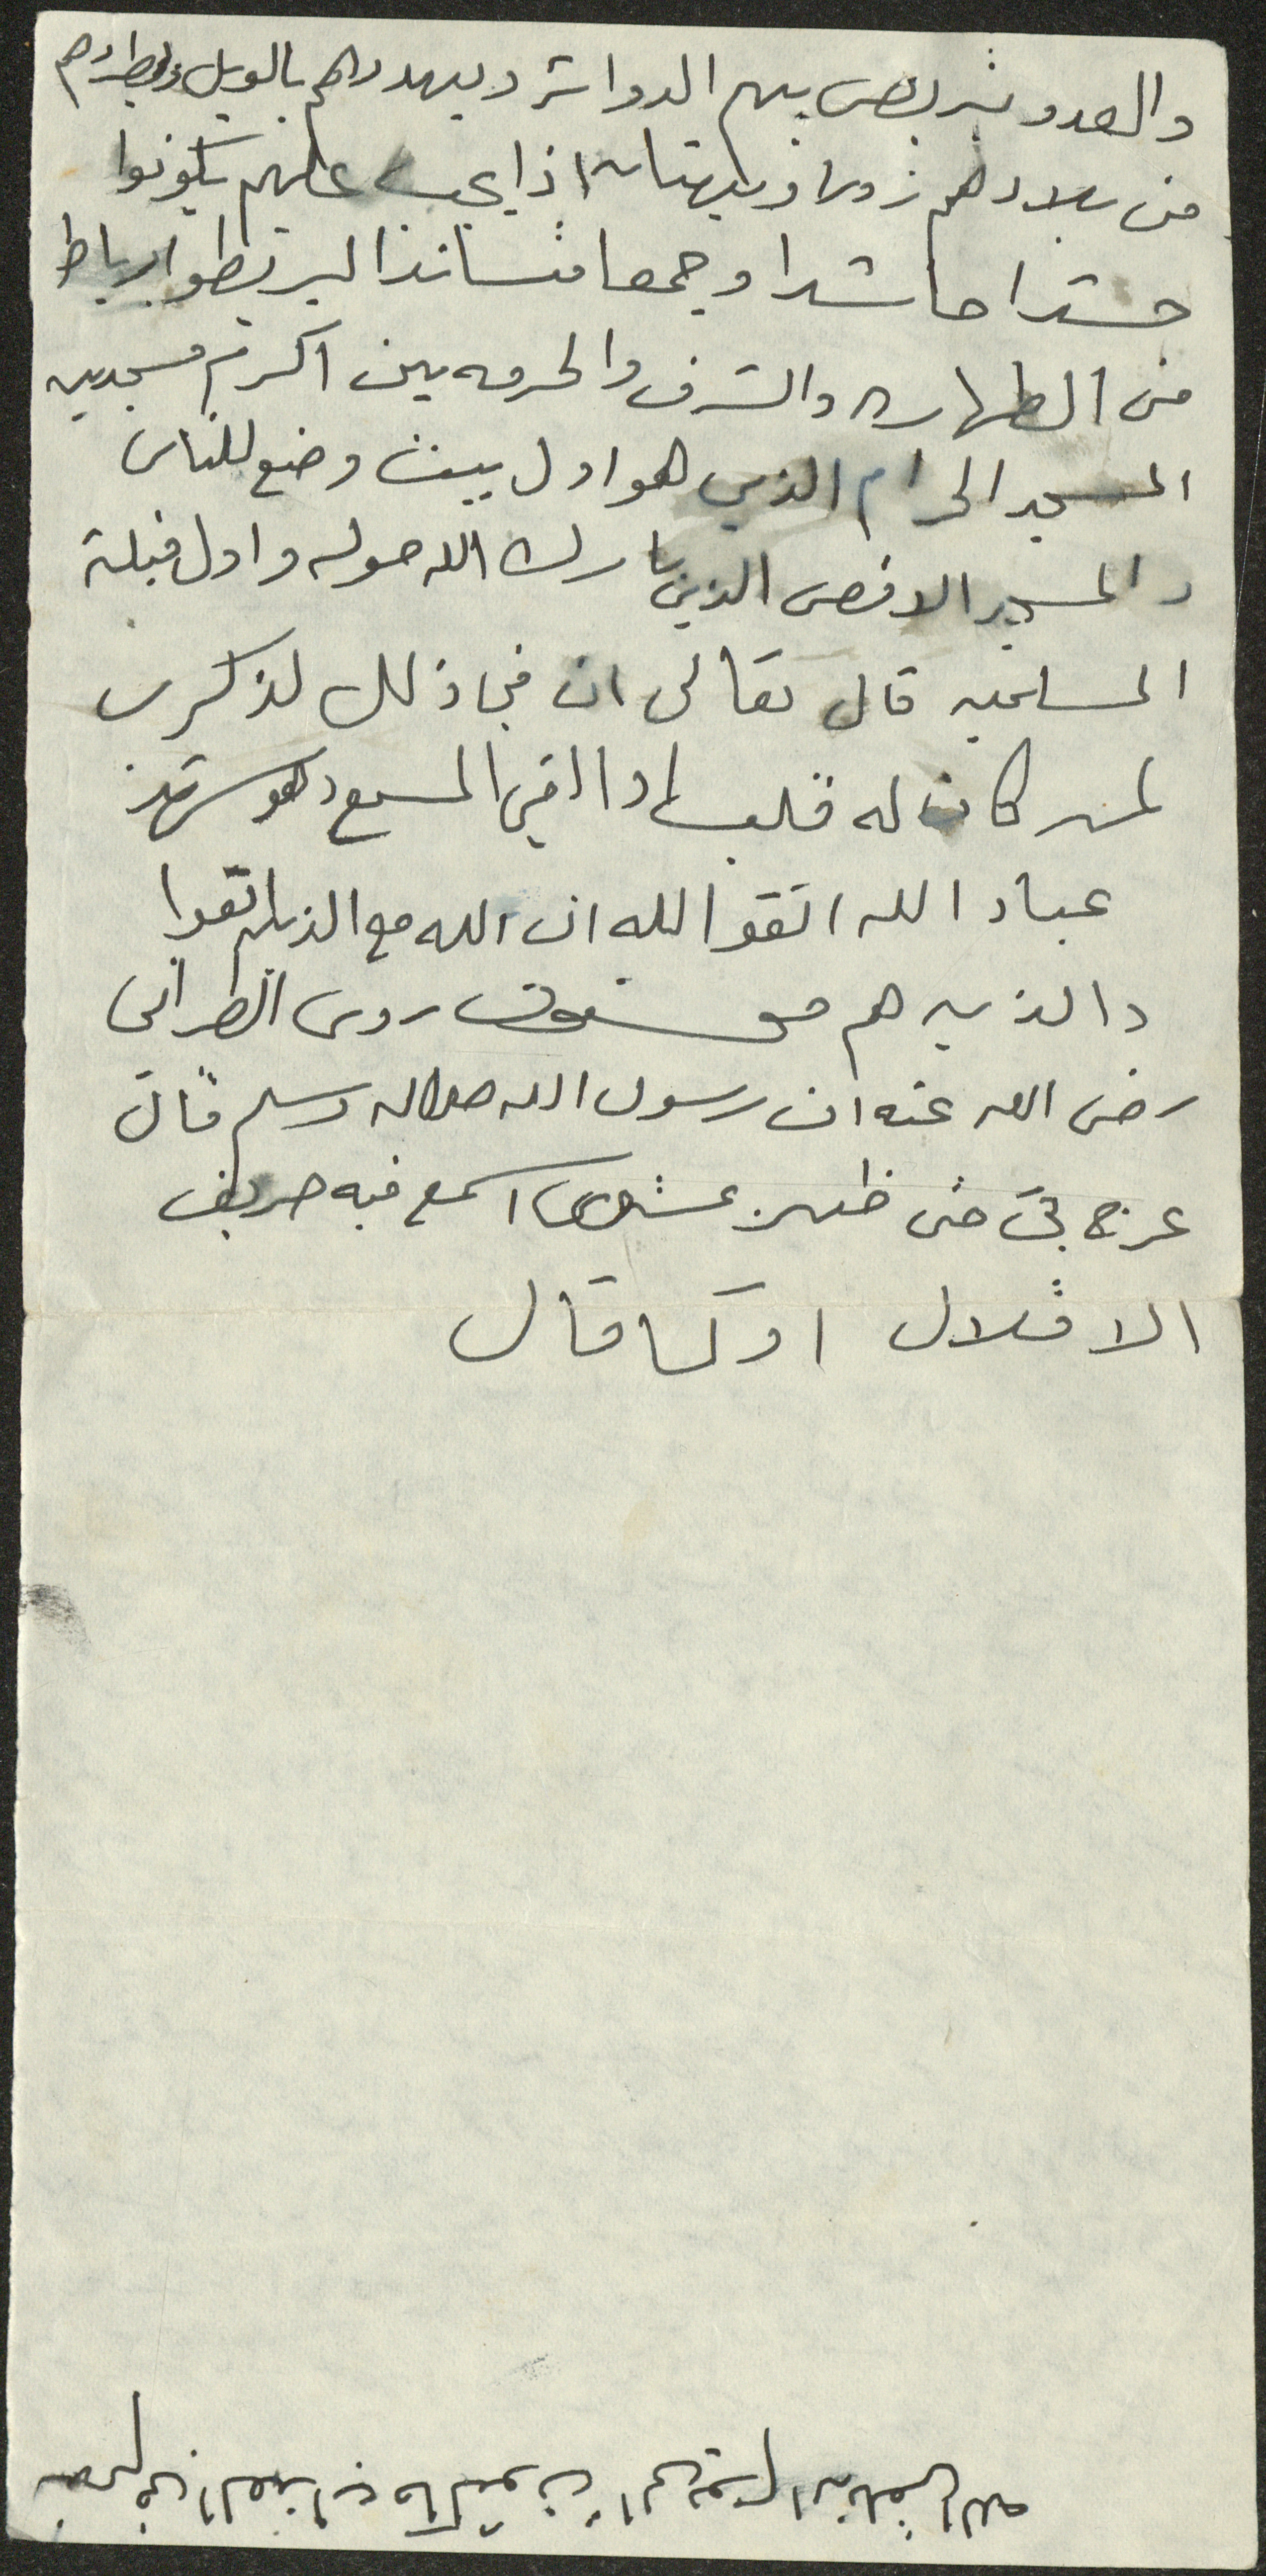 والعدو يتربص بهم الدوائر ويهددهم بالويل ويطردهم
من بلادهم زورا وبهتانا اذا يجب عليهم يكونوا
حشدا حاشدا وجمعا متساندا ليربطوا برباط
من الطهاره والشرف والحرمه بين اكرم مسجدين
المسجد الحرام الذي هو اول بيت وضع للناس
والمسجد الاقصى الذي بارك الله حوله واول قبلة
المسلمين قال تعالى ان في ذلك لذكرى
لمن كان له قلب او القى السمع وهو شهيد
عباد الله اتقوا الله ان الله مع الذين اتقوا
والذين هم محسنون روى الطبراني
رضى الله عنه ان رسول الله صلى الله وسلم قال
عرج بي حتى ظهرت اسمع فيه صريف
الاقلال او كما قال